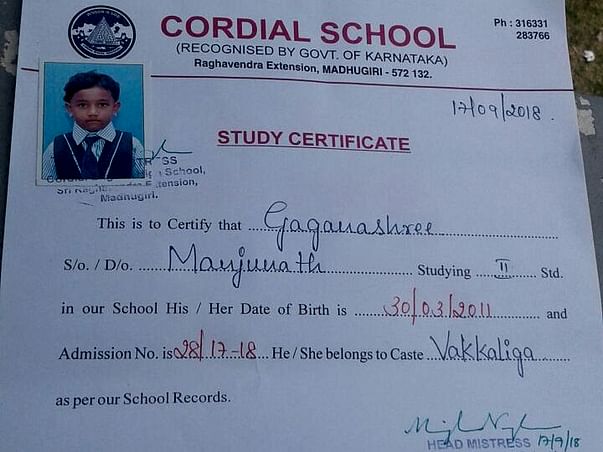 CORDIAL SCHOOL
Ph : 316331
283766
(RECOGNISED BY GOVT. OF KARNATAKA)
Raghavendra Extension, MADHUGIRI - 572 132.
17/09/2018.
STUDY CERTIFICATE
School,
Extension,
Madhugiri.
This is to Certify that Gaganashree
S/o. / D/o. Manjunath Studying II Std.
in our School His / Her Date of Birth is 30/03/2011 and
Admission No. is 28/17-18 He / She belongs to Caste Vakkaliga
as per our School Records.
HEAD MISTRESS 17/9/18